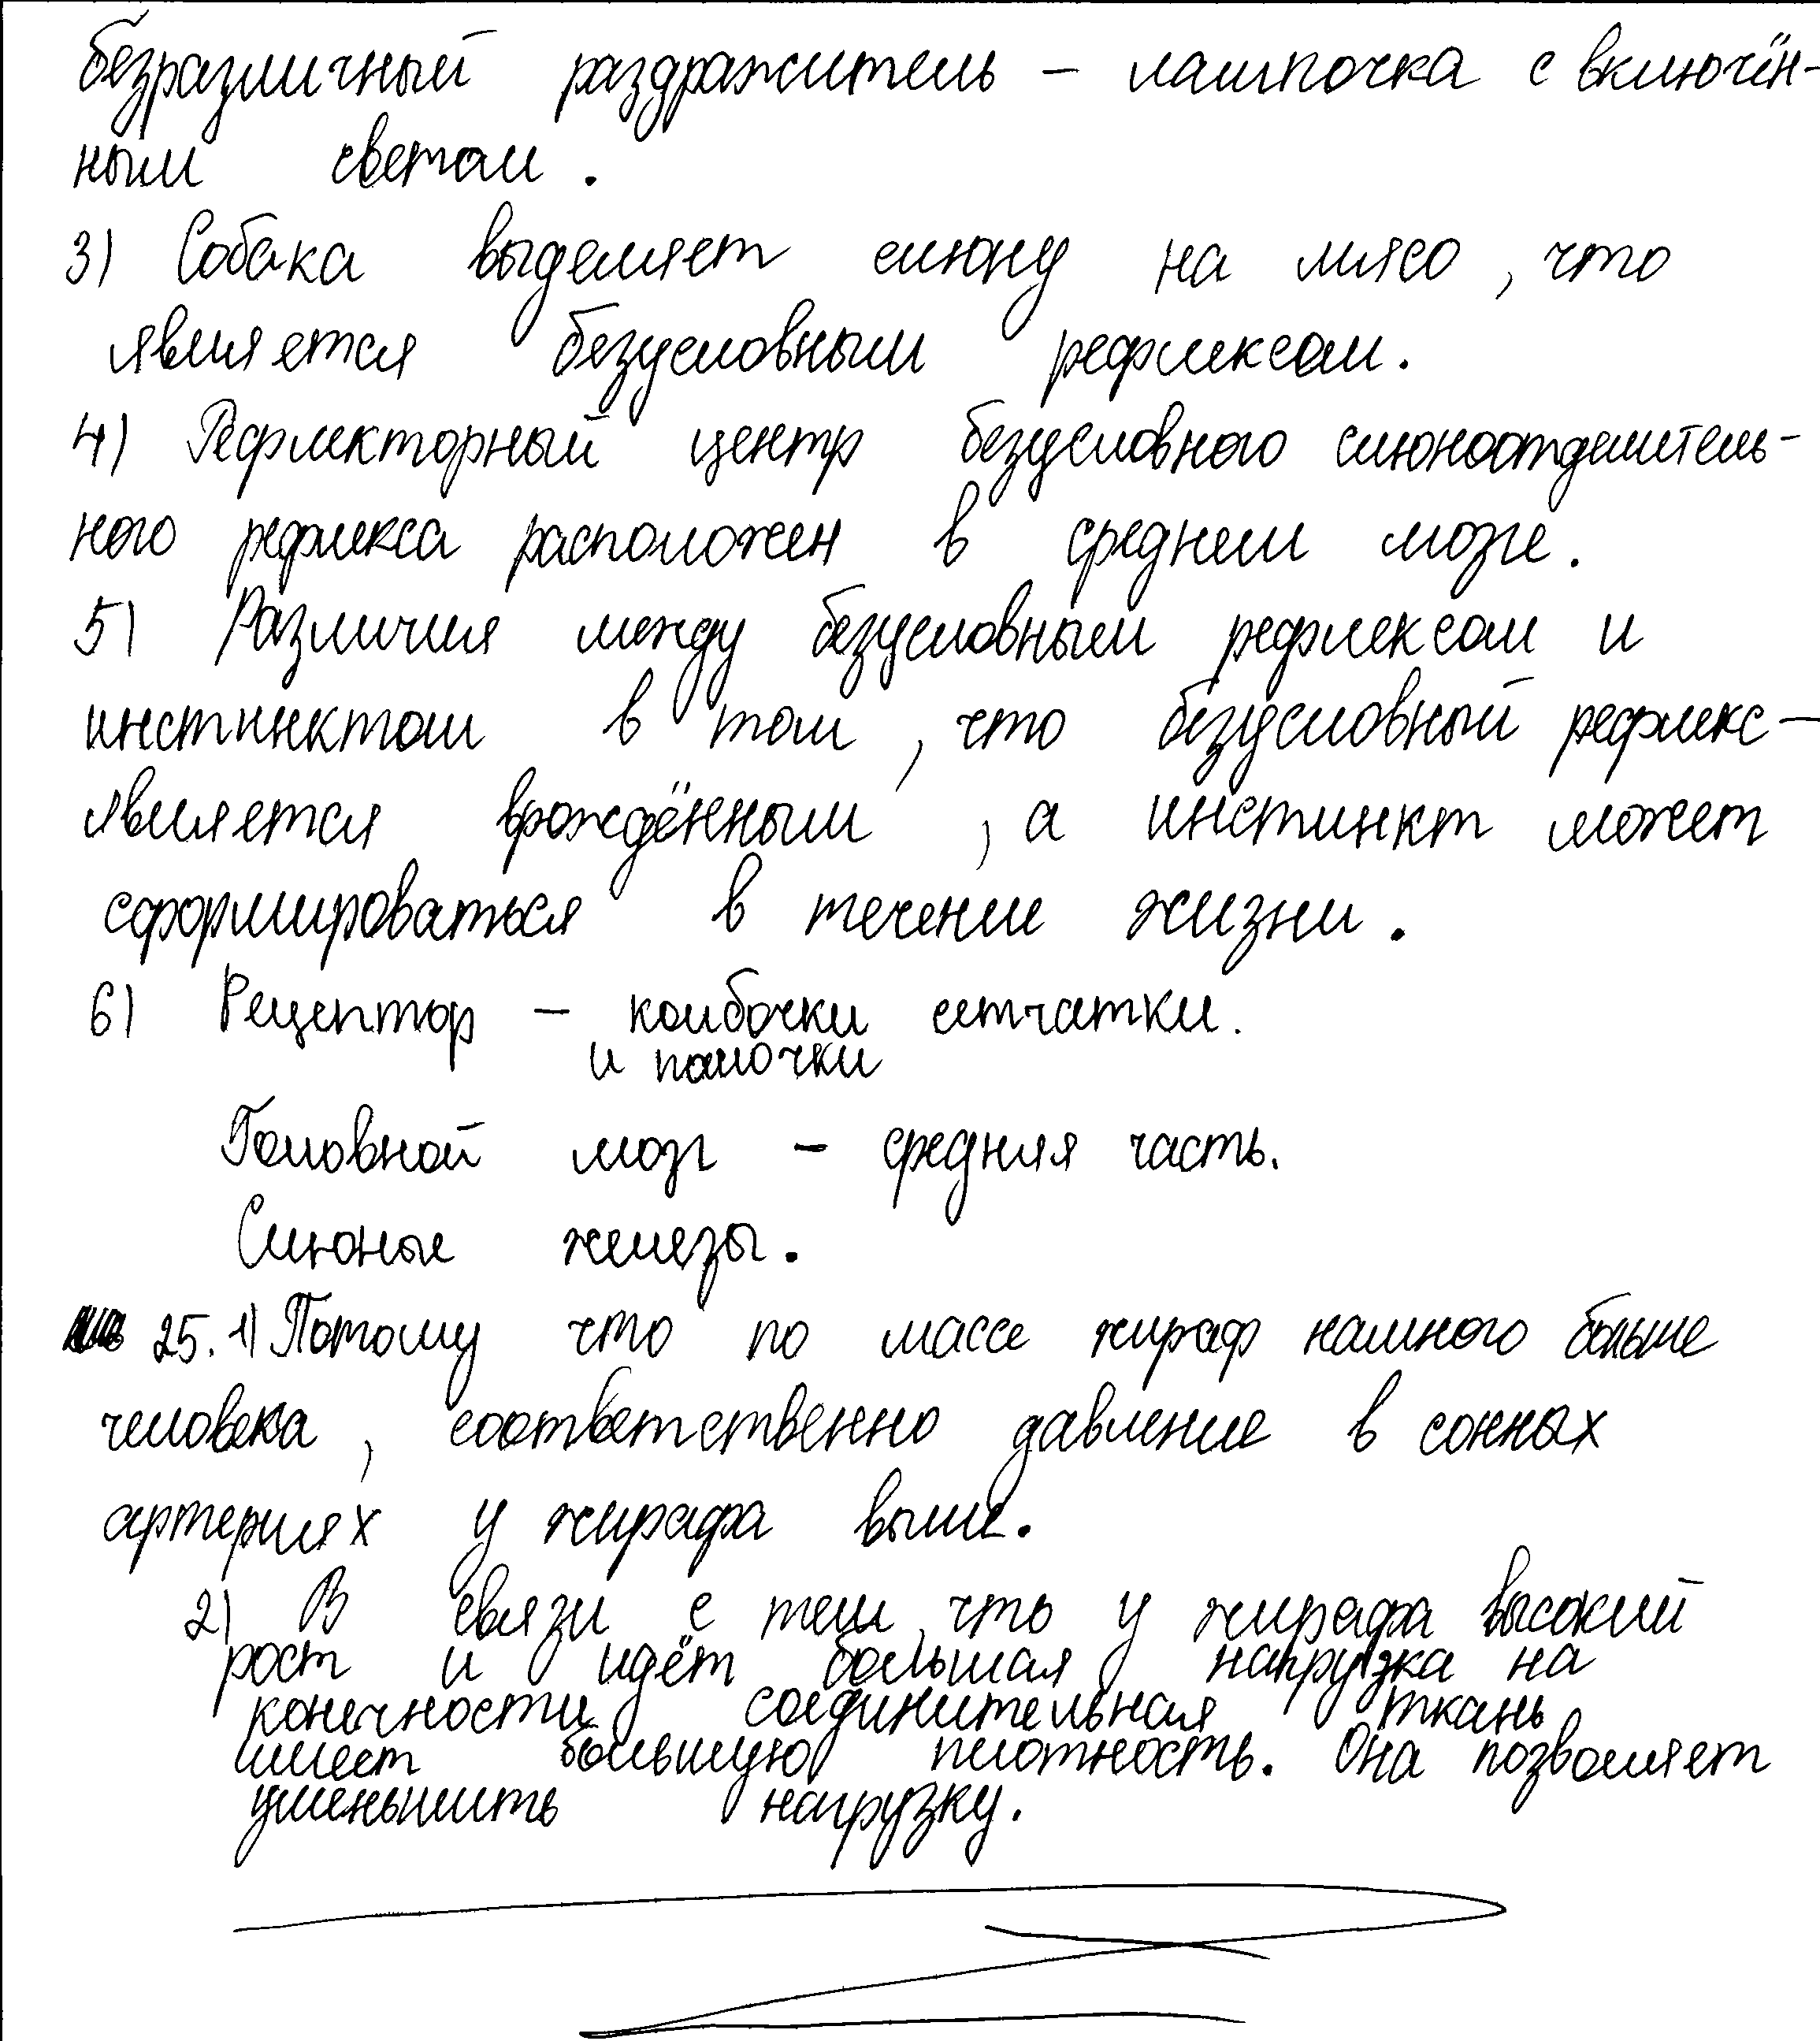 безразличный раздражитель – лампочка с включён-
ным светом.
3) Собака выделяет слюну на мясо, что
является безусловным рефлексом.
4) Рефлекторный центр безусловного слюноотделитель-
ного рефлекса расположен в среднем мозге.
5) Различия между безусловным рефлексом и
инстинктом в том, что безусловный рефлекс –
является врождённым, а инстинкт может
сформироваться в течение жизни.
6) Рецептор – колбочки сетчатки.
и палочки
Головной мозг – средняя часть.
Слюные железы.
25. 1) Потому что по массе жираф намного больше
человека, соответственно давление в сонных
артериях у жирафа выше.
2) В связи с тем, что у жирафа высокий
рост и идёт большая нагрузка на
конечности соединительная ткань
имеет большую плотность. Она позволяет
уменьшить нагрузку.